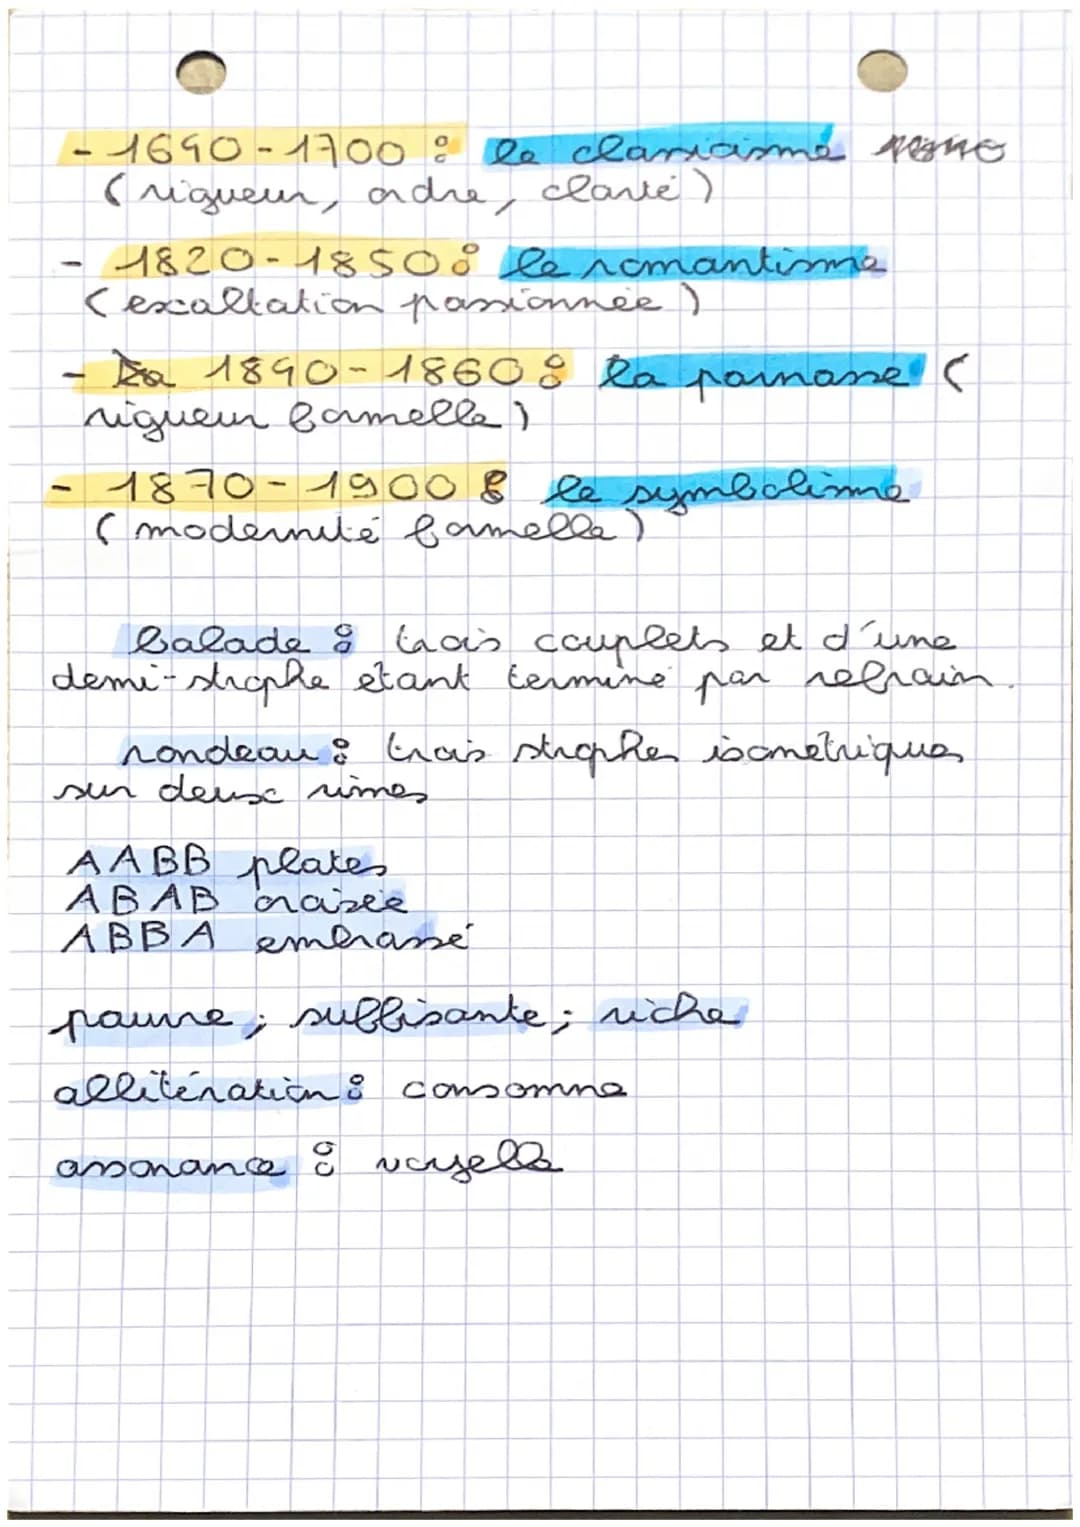 - 1690-1700 : le classicisme
(rigueur, ordre, clarté)
- 1820-1850 : le romantisme
(exaltation passionnée)
- 1890-1860 : la parnasse (
rigueur formelle)
- 1870-1900 : le symbolisme
(modernité formelle)
balade : trois couplets et d'une
demi-strophe étant terminé par refrain.
rondeau : trois strophes isométriques
sur deux rimes
AABB plates
ABAB croisée
ABBA embrassé
pauvre ; suffisante ; riche
allitération : consomne
assonance : voyelle